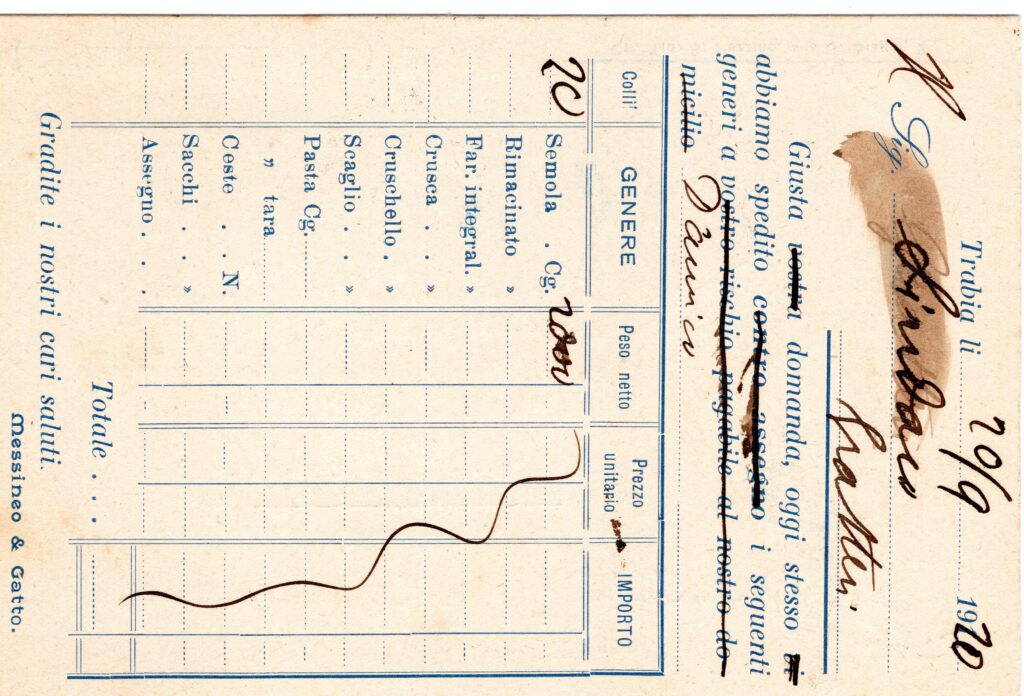 Trabia li 20/9 1920
Al Sig. Sindaco
Gratteri
Giusta vostra domanda, oggi stesso vi
abbiamo spedito contro assegno i seguenti
generi a vostro rischio pagabile al nostro do-
micilio
Colli GENERE Peso netto Prezzo unitario IMPORTO
20 Semola . Cg. 2000
Rimacinato »
Far. integral. »
Crusca . . »
Cruschello . »
Scaglio . . »
Pasta Cg.
„ tara
Ceste . N.
Sacchi . . »
Assegno . .
Totale . . .
Gradite i nostri cari saluti.
Messineo & Gatto.